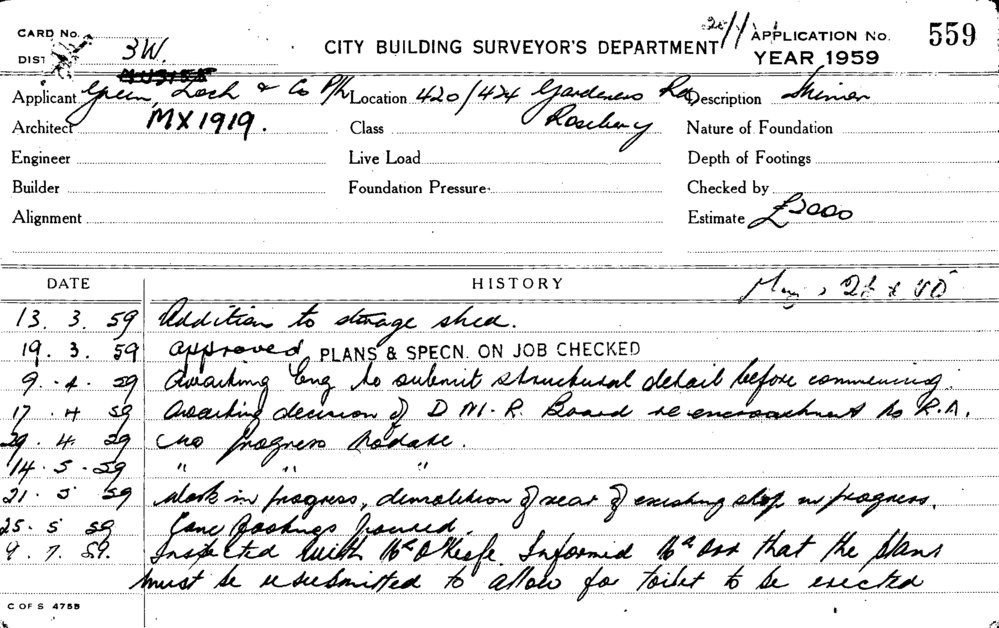 CARD No.
DIST
3W.
CITY BUILDING SURVEYOR'S DEPARTMENT
APPLICATION No. 559
YEAR 1959
Applicant Green, & Co P/L Location 420/424 Gardeners Rd Description
Rosebery
Architect MX1919. Class Nature of Foundation
Engineer Live Load Depth of Footings
Builder Foundation Pressure Checked by
Alignment Estimate £3000
DATE HISTORY
13. 3. 59 Addition to storage shed.
19. 3. 59 Approved PLANS & SPECN. ON JOB CHECKED
9. 4. 59 Awaiting Eng to submit structural detail before commencing.
17. 4 59 Awaiting decision of D. M. R. Board re encroachment to R.A.
29. 4. 59 No progress to date.
14. 5. 59 " " "
21. 5 59 Work in progress, demolition of rear of existing shop in progress.
25. 5 59 Conc footings poured.
9. 7. 59. Inspected with Mr O'Keefe. Informed Mr that the plans
must be resubmitted to allow for toilet to be erected
C OF S 4755